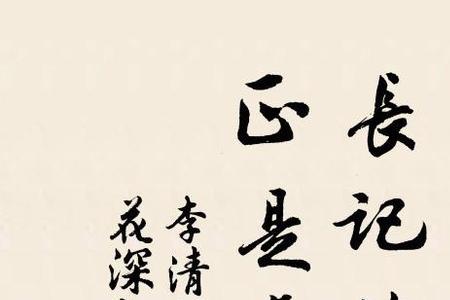 長記
正是
李清
花深